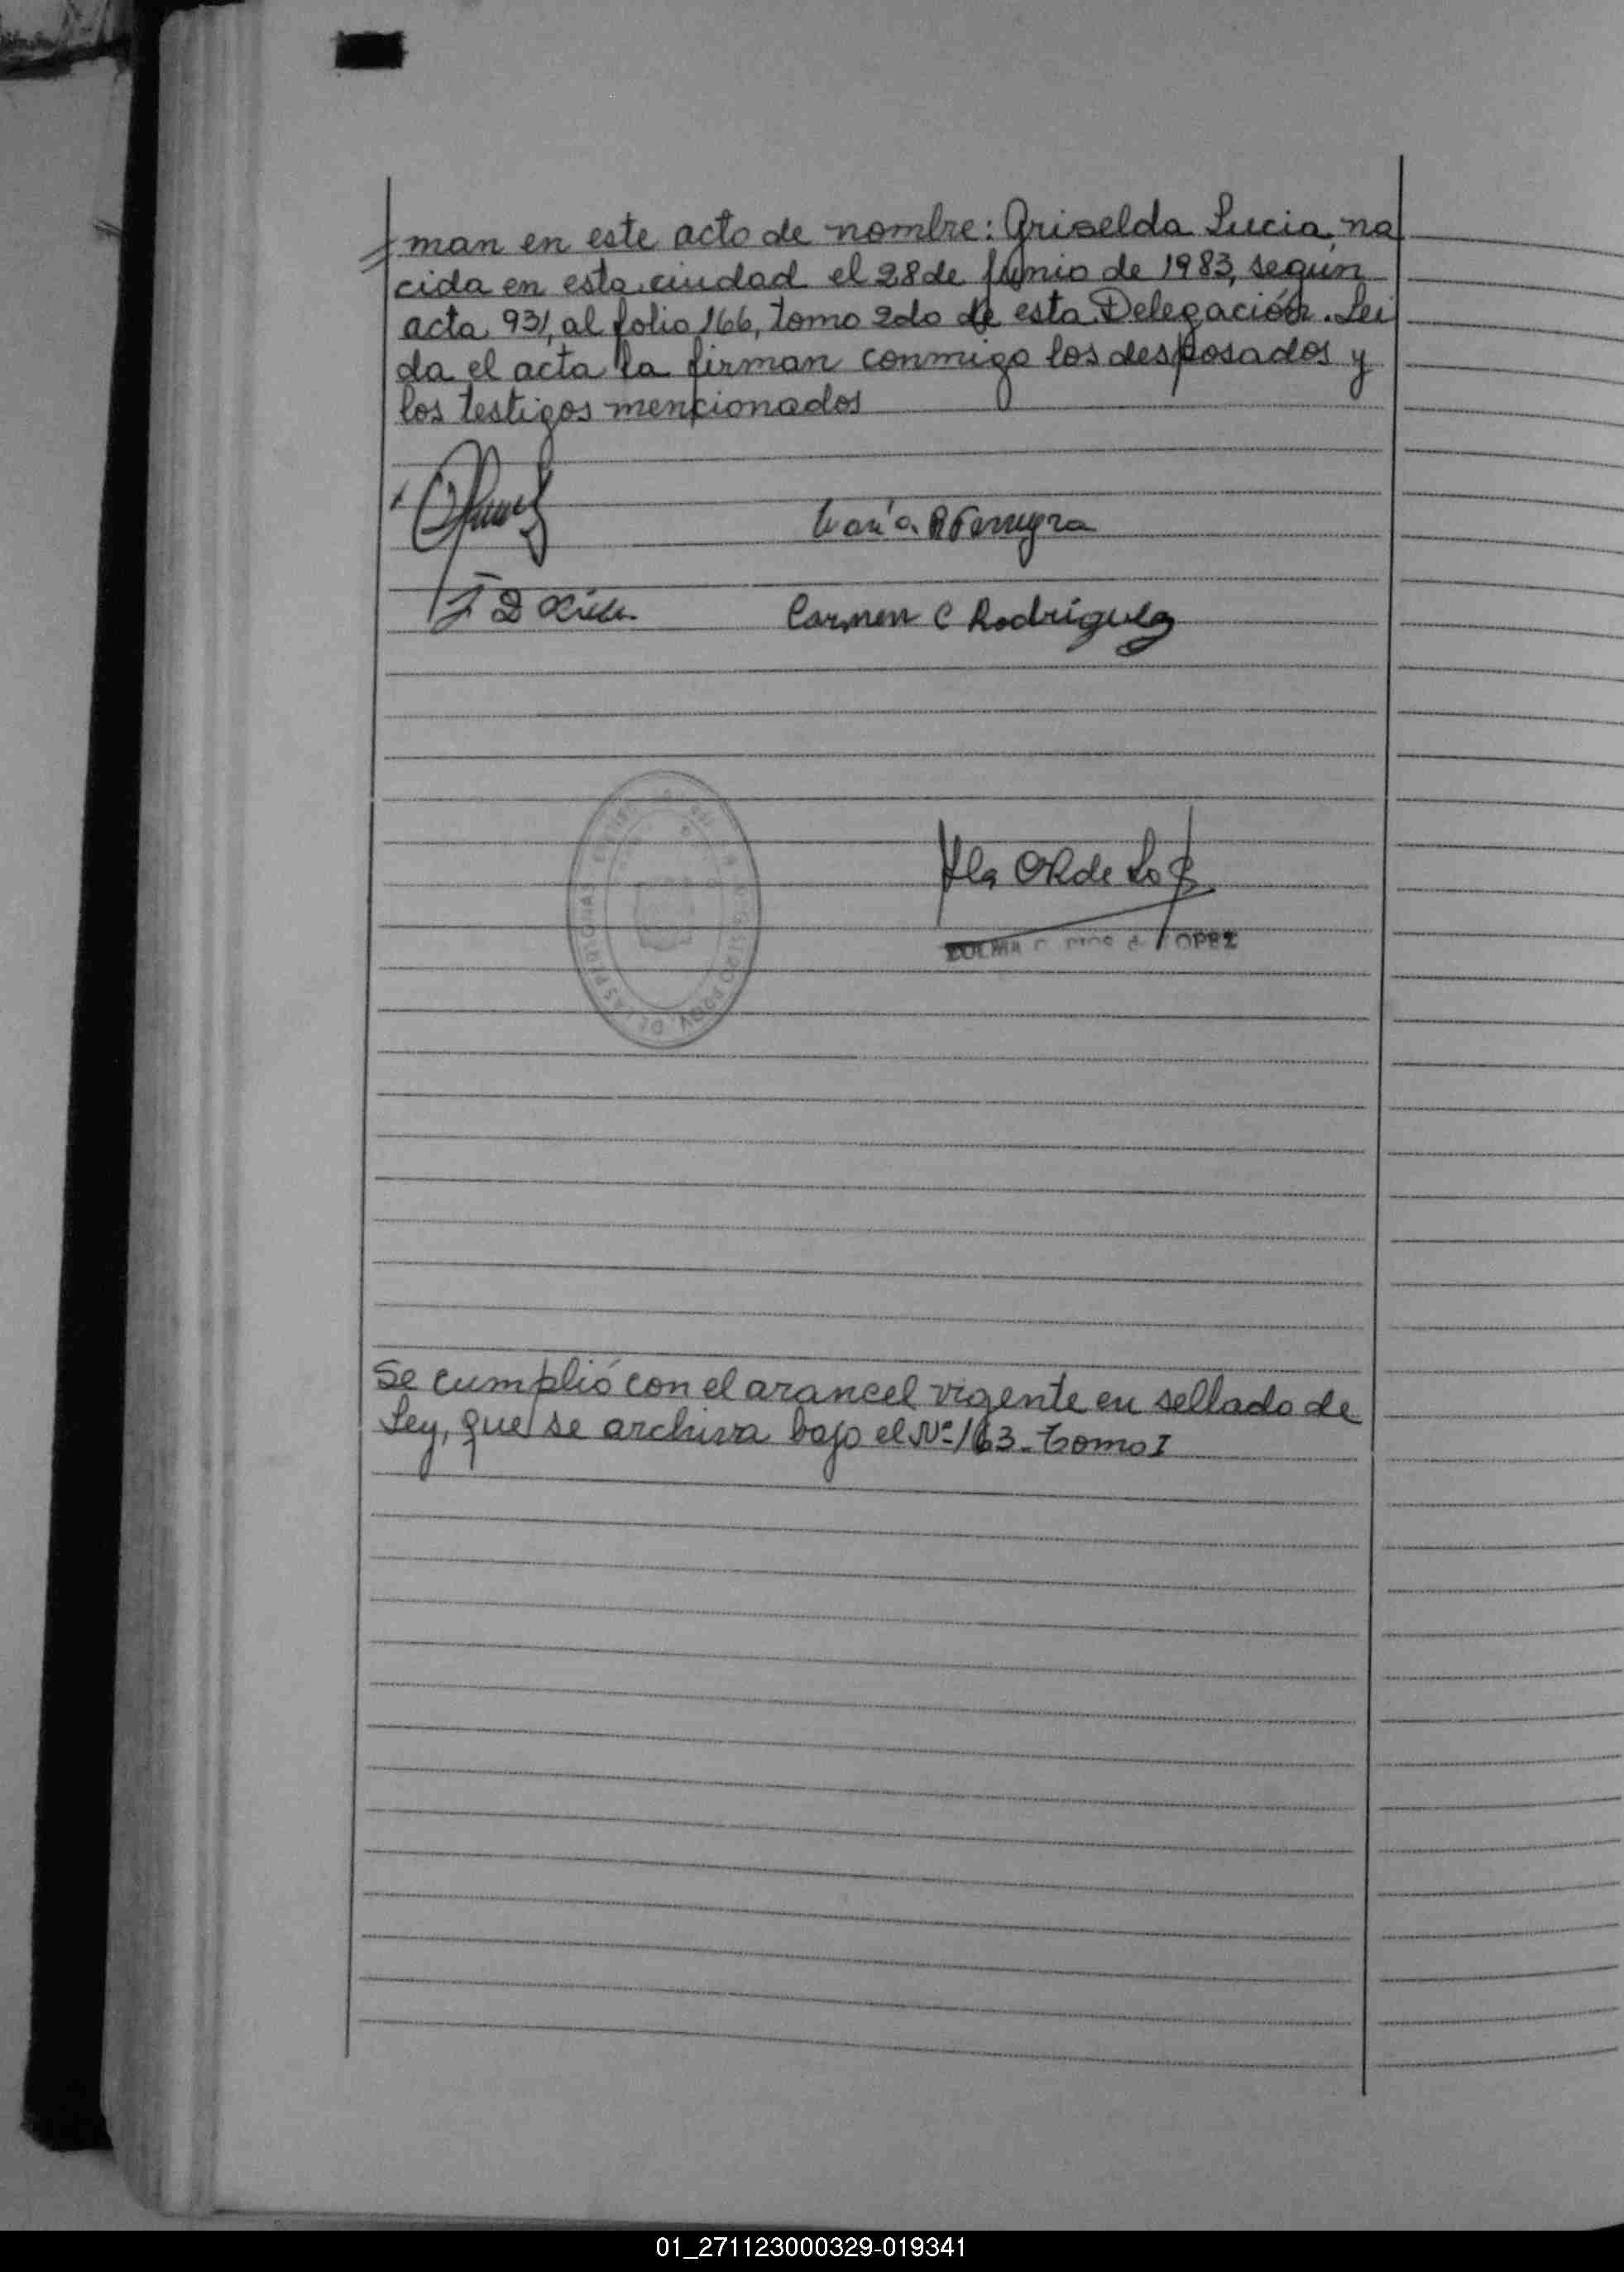 man en este acto de nombre: Griselda Lucia, na
cida en esta ciudad el 28 de Junio de 1983, según
acta 931, al folio 166, tomo 2do de esta Delegación. Lei
da el acta la firman conmigo los desposados y
los testigos mencionados
Maria R Ferreyra
Carmen C Rodriguez
LOPEZ
REGISTRO PROV. DE LAS PERSONAS
Se cumplió con el arancel vigente en sellado de
Ley, que se archiva bajo el Nº 163 - Tomo I
01_271123000329-019341